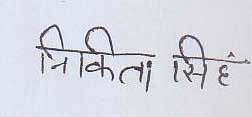 निकिता सिहं